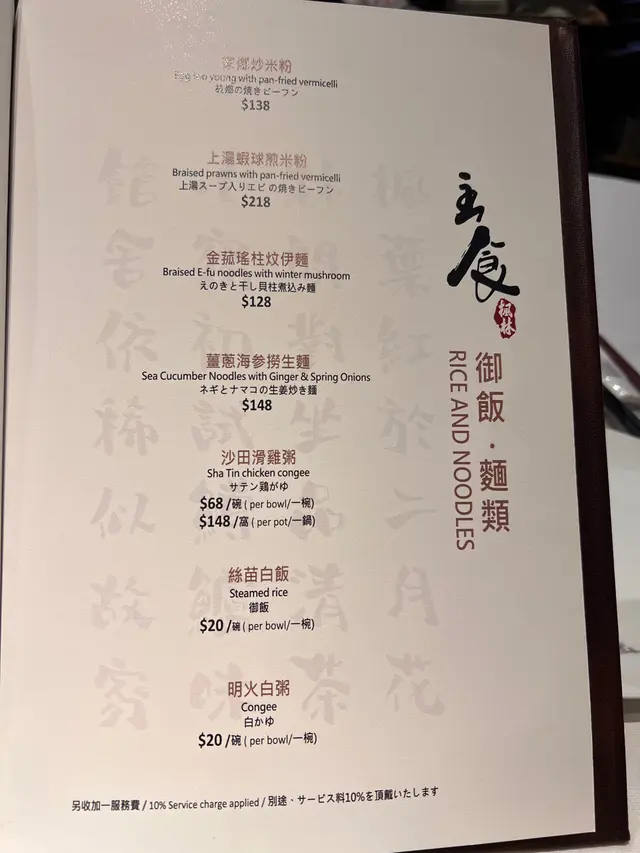 炒米粉
Egg foo young with pan-fried vermicelli
故鄉の焼きビーフン
$138
上湯蝦球煎米粉
Braised prawns with pan-fried vermicelli
上湯スープ入りエビの焼きビーフン
$218
金菰瑤柱炆伊麵
Braised E-fu noodles with winter mushroom
えのきと干し貝柱煮込み麵
$128
薑蔥海參撈生麵
Sea Cucumber Noodles with Ginger & Spring Onions
ネギとナマコの生姜炒き麵
$148
沙田滑雞粥
Sha Tin chicken congee
サテン鶏がゆ
$68 /碗 ( per bowl/一椀)
$148 /窩 ( per pot/一鍋)
絲苗白飯
Steamed rice
御飯
$20 /碗 ( per bowl/一椀)
明火白粥
Congee
白かゆ
$20 /碗 ( per bowl/一椀)
主食
楓林
御飯．麵類
RICE AND NOODLES
楓葉紅於二月花
對坐品清茶
初試
館舍依稀似故
另收加一服務費 / 10% Service charge applied / 別途、サービス料10%を頂戴いたします